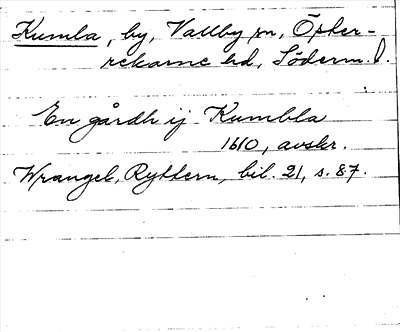 Kumla, by, Vallby sn, Öster-
rekarne hd, Söderm. l.
En gårdh ij Kumbla
1610, avskr.
Wrangel, Ryttern, bil. 21, s. 87.